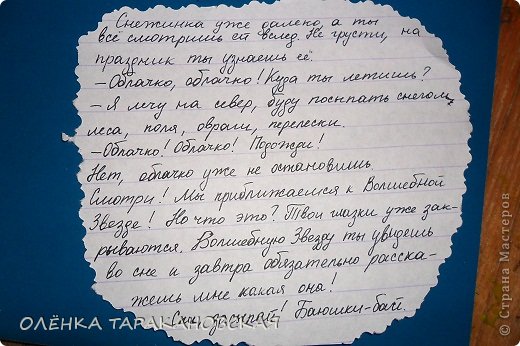 Снежинка уже далеко, а ты
всё смотришь ей вслед. Не грусти, на
праздник ты узнаешь её.
- Облачко, облачко! Куда ты летишь?
- Я лечу на север, буду посыпать снегом,
леса, поля, овраги, перелески.
- Облачко! Облачко! Подожди!
Нет, облачко уже не остановишь.
Смотри! Мы приближаемся к Волшебной
Звезде! Но что это? Твои глазки уже зак-
рываются. Волшебную Звезду ты увидешь
во сне и завтра обязательно расска-
жешь мне какая она!
Спи, засыпай! Баюшки-бай.
ОЛЁНКА ТАРАКАНОВСКАЯ
© Страна Мастеров